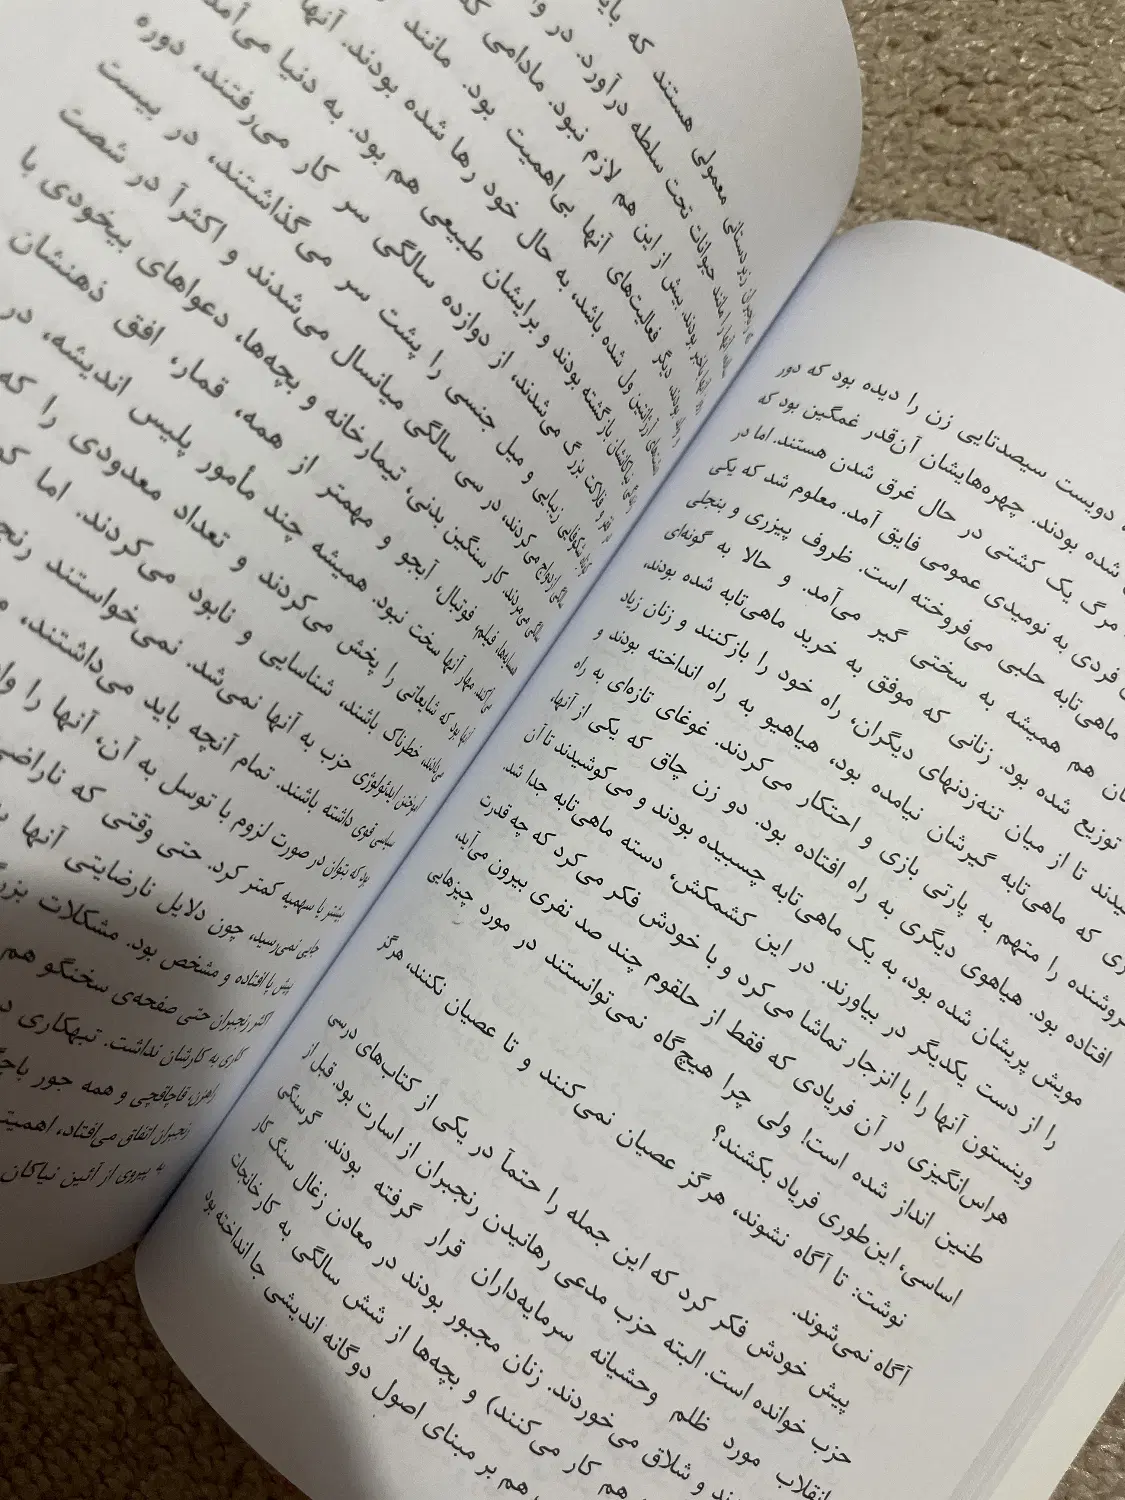 دویست سیصدتایی زن را دیده بود که دور
شده بودند. چهره‌هایشان آن‌قدر غمگین بود که
مرگ یک کشتی در حال غرق شدن هستند. اما در
فردی به نومیدی عمومی فایق آمد. معلوم شد که یکی
ماهی‌تابه حلبی می‌فروخته است. ظروف پیزری و بنجلی
هم همیشه به سختی گیر می‌آمد. و حالا به گونه‌ای
توزیع شده بود. زنانی که موفق به خرید ماهی‌تابه شده بودند،
تا از میان تنه‌زدنهای دیگران، راه خود را بازکنند و زنان زیاد
که ماهی‌تابه گیرشان نیامده بود، هیاهیو به راه انداخته بودند و
فروشنده را متهم به پارتی بازی و احتکار می‌کردند. غوغای تازه‌ای به راه
افتاده بود. هیاهوی دیگری به راه افتاده بود. دو زن چاق که یکی از آنها،
مویش پریشان شده بود، به یک ماهی‌تابه چسبیده بودند و می‌کوشیدند تا آن
را از دست یکدیگر در بیاورند. در این کشمکش، دسته ماهی‌تابه جدا شد.
وینستون آنها را با انزجار تماشا می‌کرد و با خودش فکر می‌کرد که چه قدرت
هراس‌انگیزی در آن فریادی که فقط از حلقوم چند صد نفری بیرون می‌آید،
طنین انداز شده است! ولی چرا هیچ‌گاه نمی‌توانستند در مورد چیزهایی
اساسی، این‌طوری فریاد بکشند؟
نوشت: تا آگاه نشوند، هرگز عصیان نمی‌کنند و تا عصیان نکنند، هرگز
آگاه نمی‌شوند.
پیش خودش فکر کرد که این جمله را حتمآ در یکی از کتاب‌های درسی
حزب خوانده است. البته حزب مدعی رهانیدن رنجبران از اسارت بود. قبل از
انقلاب مورد ظلم وحشیانه سرمایه‌داران قرار گرفته بودند. گرسنگی
و شلاق می‌خوردند. زنان مجبور بودند در معادن زغال سنگ کار
هم کار می‌کنند) و بچه‌ها از شش سالگی به کارخانجات
هم بر مبنای اصول دوگانه اندیشی جا انداخته بود
زیر دستانی معمولی هستند که
مانند حیوانات تحت سلطه درآورد. در
بودند. بیش از این هم لازم نبود. مادامی که
دیگر فعالیت‌های آنها بی‌اهمیت بود. مانند
آرژانتین ول شده باشد، به حال خود رها شده بودند. آنها
نیاکانشان بازگشته بودند و برایشان طبیعی هم بود. به دنیا
فقر و فلاکت بزرگ می‌شدند، از دوازده سالگی سر کار می‌رفتند، دوره
شکوفایی زیبایی و میل جنسی را پشت سر می‌گذاشتند، در بیست
سالگی ازدواج می‌کردند، در سی سالگی میانسال می‌شدند و اکثرآ در شصت
سالگی می‌مردند. کار سنگین بدنی، تیمارخانه و بچه‌ها، دعواهای بیخودی با
همسایه‌ها، فیلم، فوتبال، آبجو و مهمتر از همه، قمار، افق ذهنشان
مهار آنها سخت نبود. همیشه چند مأمور پلیس اندیشه، در
آنها بود که شایعاتی را پخش می‌کردند و تعداد معدودی را که
خطرناک باشند، شناسایی و نابود می‌کردند. اما
آموختن ایدئولوژی حزب به آنها نمی‌شد. نمی‌خواستند
سیاسی قوی داشته باشند. تمام آنچه باید می‌داشتند،
بود که بتوان در صورت لزوم با توسل به آن، آنها را
بیشتر یا سهمیه کمتر کرد. حتی وقتی که
جایی نمی‌رسید، چون دلایل نارضایتی آنها
پیش پا افتاده و مشخص بود. مشکلات
اکثر رنجبران حتی صفحه‌ی سخنگو هم
کاری به کارشان نداشت. تبهکاری
راهزن، قاچاقچی و همه جور
رنجبران اتفاق می‌افتاد،
به پیروی از آئین نیاکان